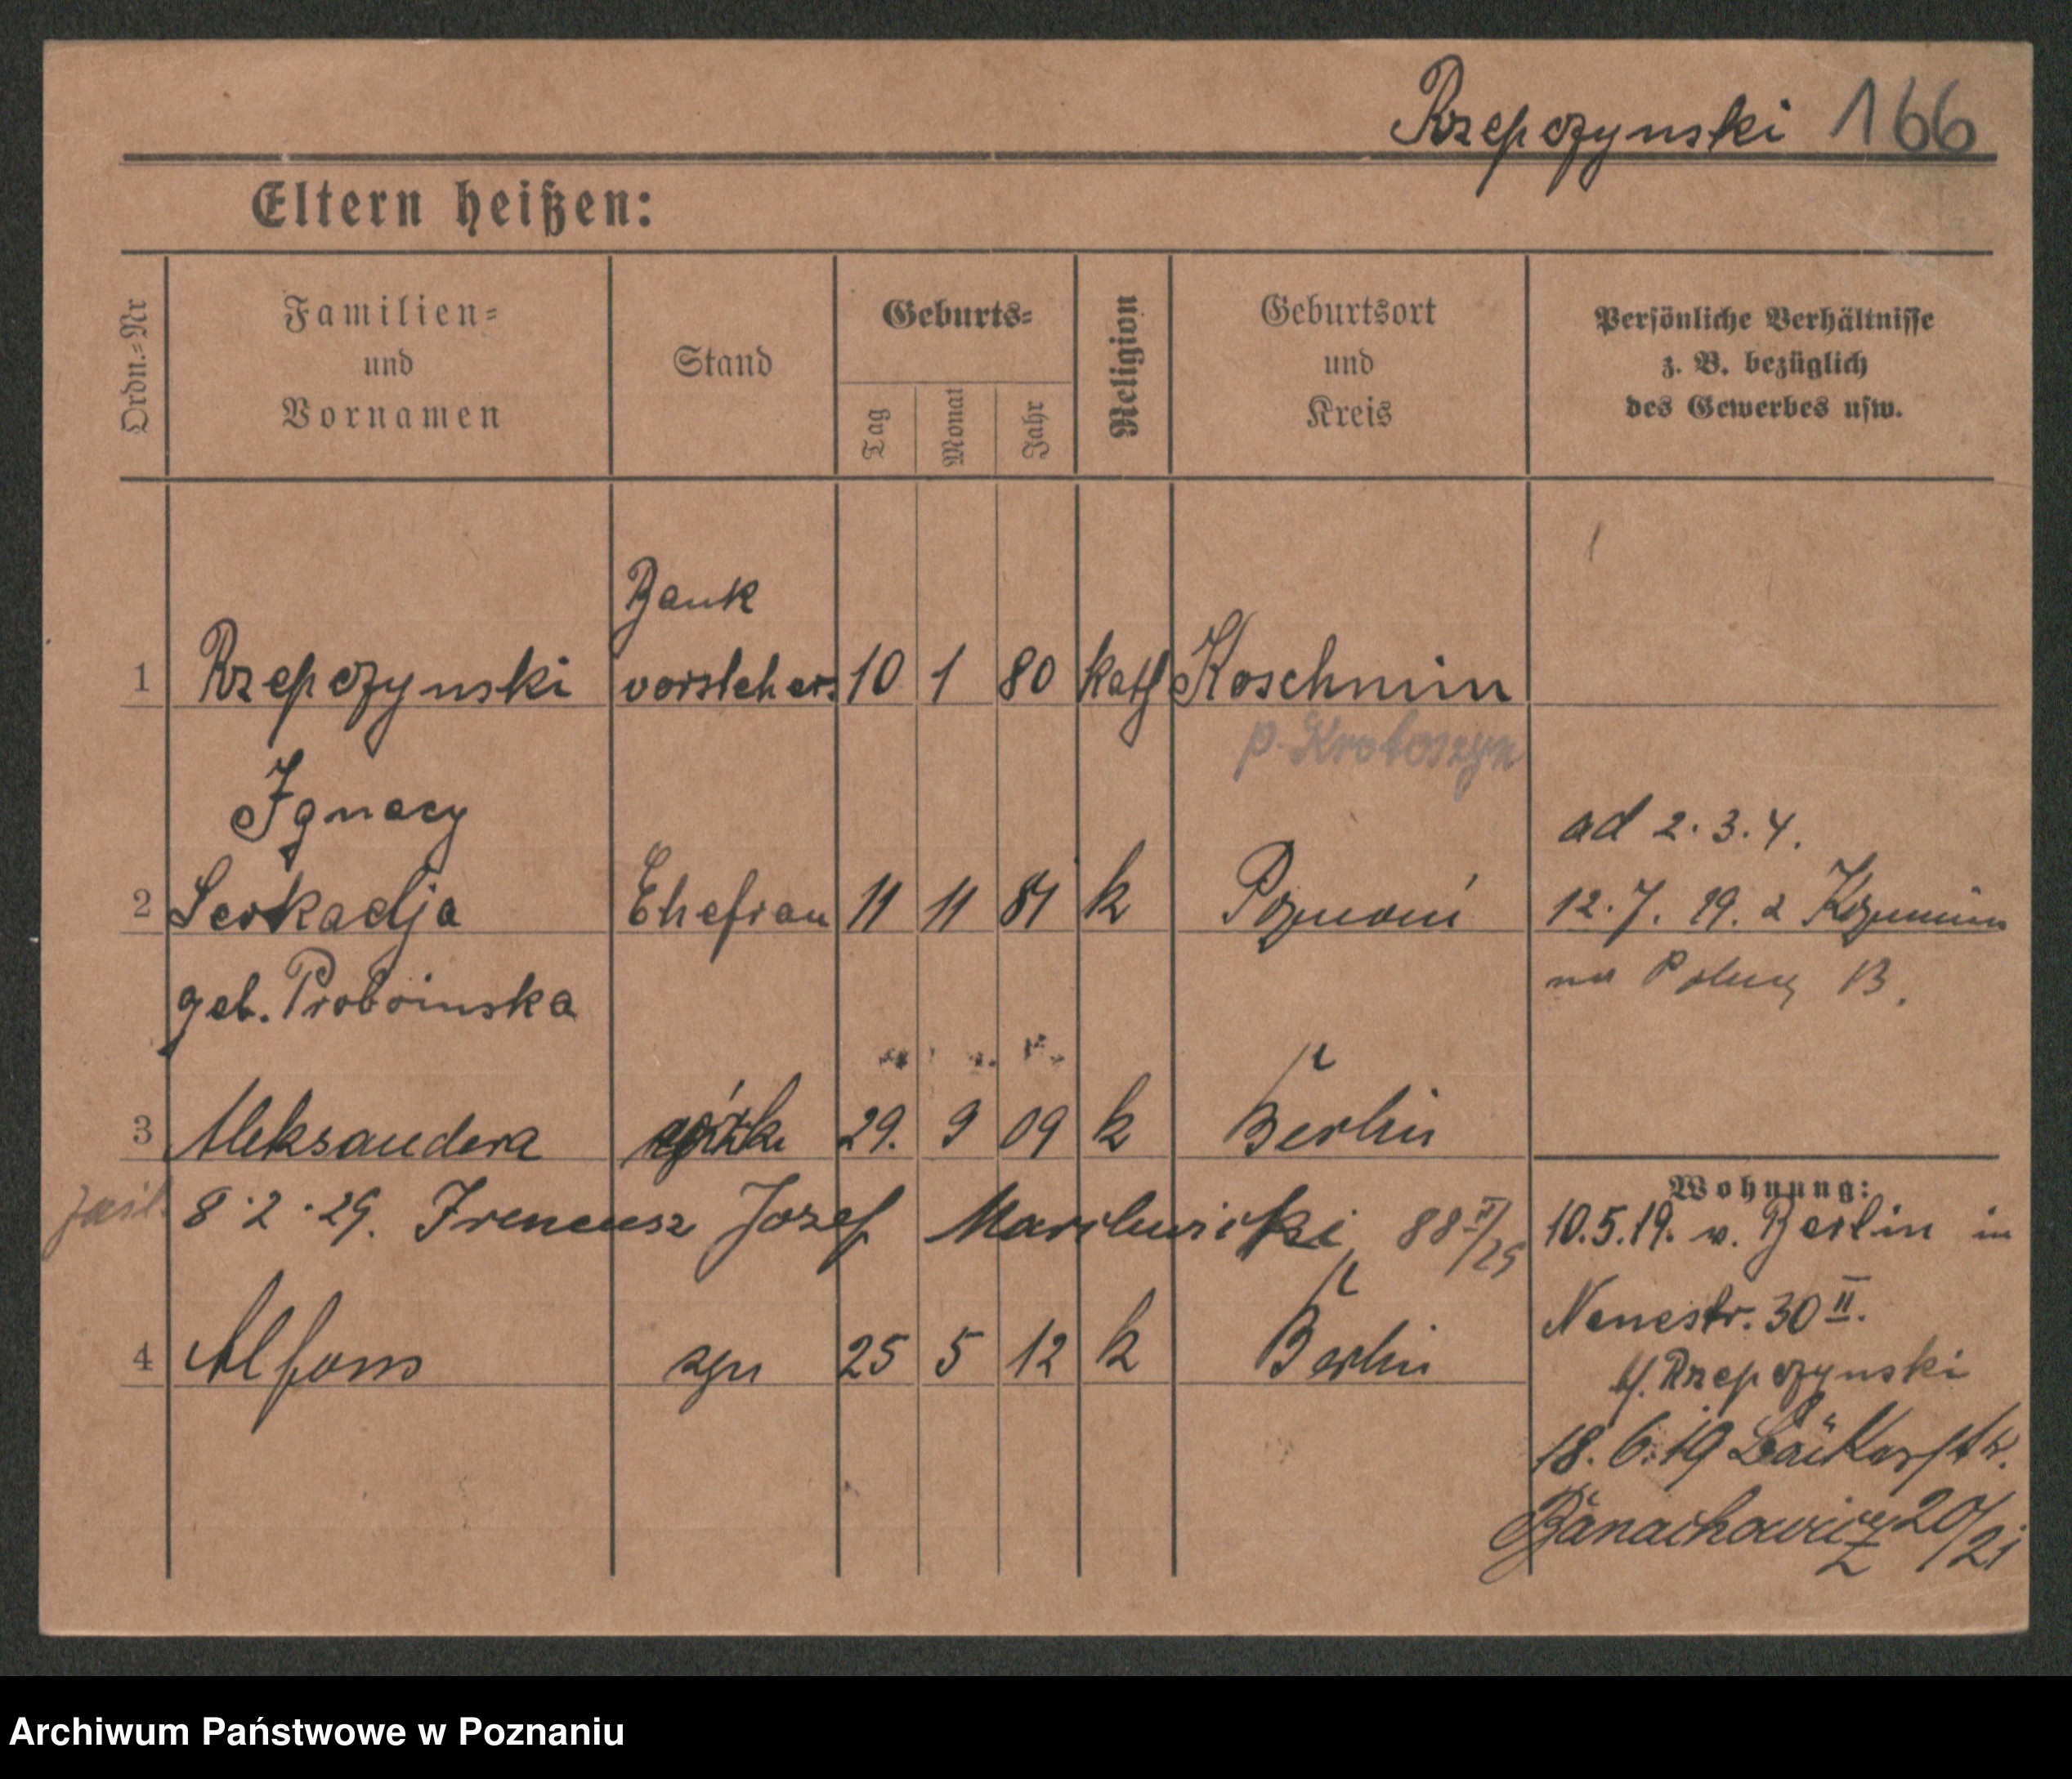 Rzepczynski 166
Eltern heißen:
Ordn.=Nr
Familien=
und
Vornamen
Stand
Geburts=
Tag
Monat
Jahr
Religion
Geburtsort
und
Kreis
Persönliche Verhältnisse
z. B. bezüglich
des Gewerbes usw.
Bank
1 Rzepczynski vorsteher 10 1 80 kath Koschmin
p. Krotoszyn
Ignacy
ad 2. 3. 4.
2 Leokadja Ehefrau 11 11 84 k Poznań 12. 7. 19. z Kozmina
geb. na B.
3 Aleksandera córka 29. 9 09 k Berlin
Wohnung:
zaśl. 8.2.29. Ireneusz Jozef 88 II/29 10.5.19. v. Berlin in
Neuestr. 30 II.
4 Alfons syn 25 5 12 k Berlin
b/. Rzepczynski
18. 6. 19 Bäckerstr.
Banachowicz 20/21
Archiwum Państwowe w Poznaniu